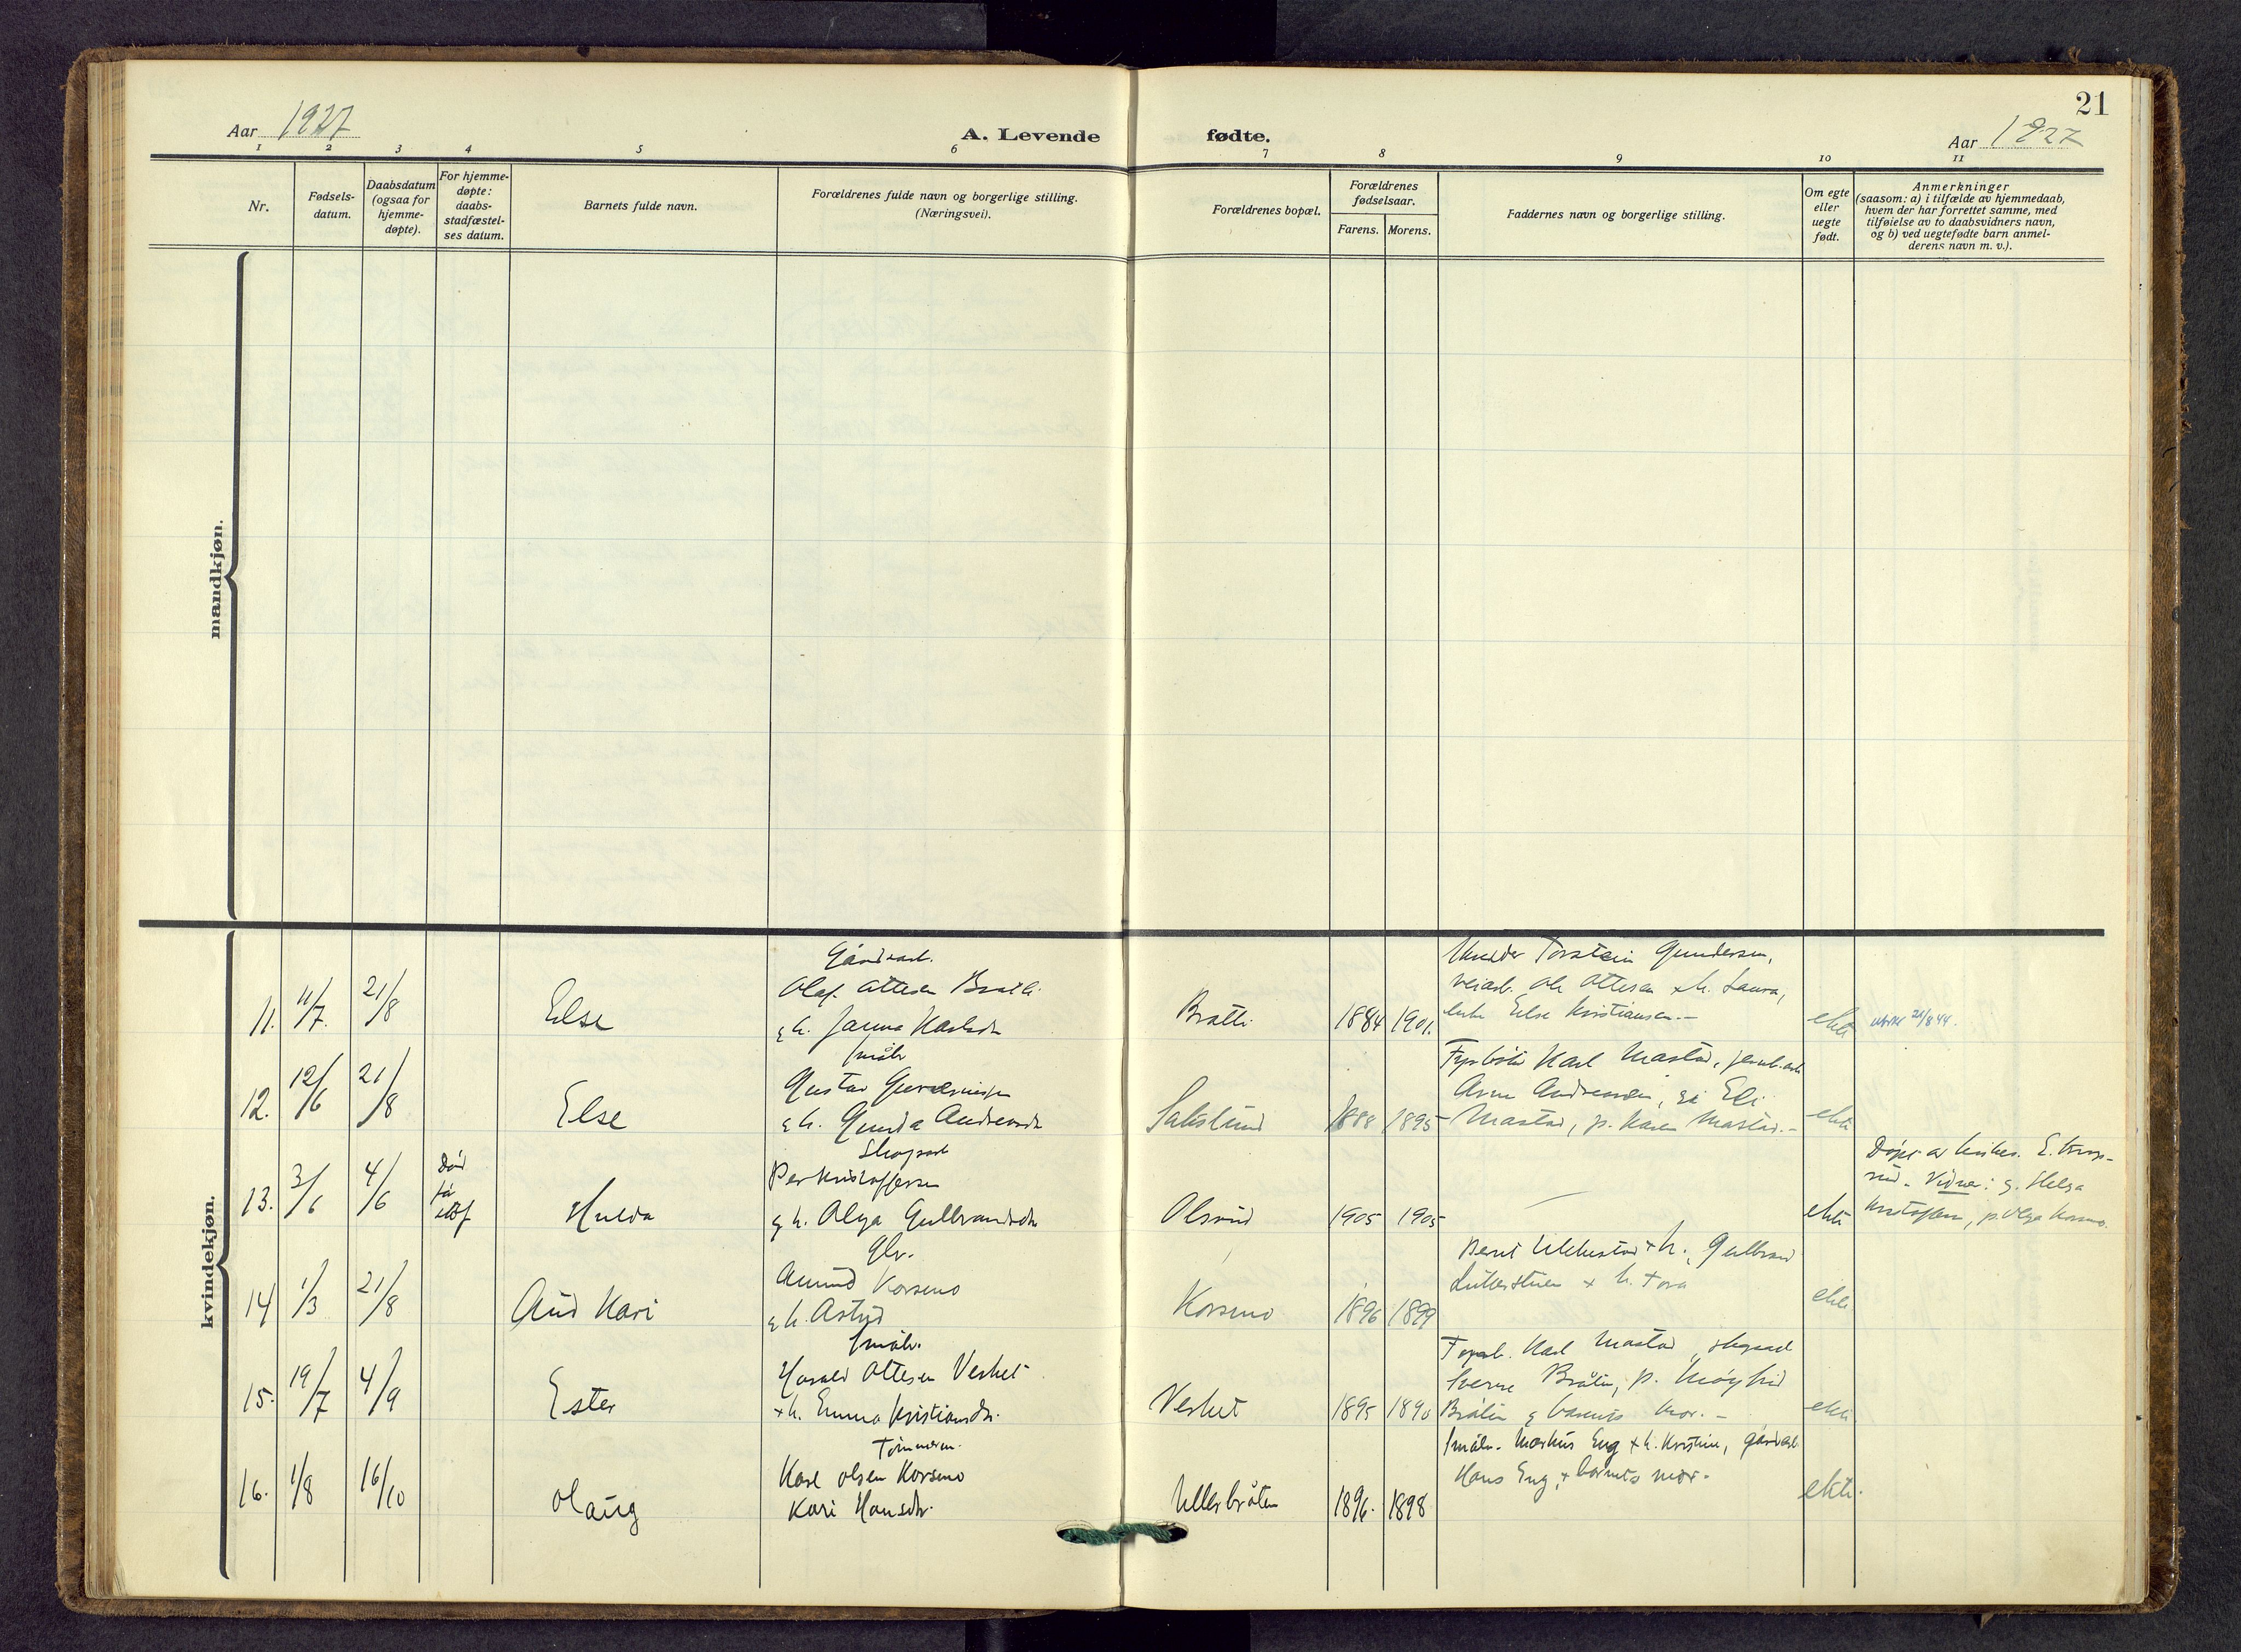 21
Aar 1927
A. Levende fødte.
Aar 1927
1 2 3 4 5 6 7 8 9 10 11
Nr.
Fødsels-
datum.
Daabsdatum
(ogsaa for
hjemme-
døpte).
For hjemme-
døpte:
daabs-
stadfæstel-
ses datum.
Barnets fulde navn.
Forældrenes fulde navn og borgerlige stilling.
(Næringsvei).
Forældrenes bopæl.
Forældrenes
fødselsaar.
Farens. Morens.
Faddernes navn og borgerlige stilling.
Om egte
eller
uegte
født.
Anmerkninger
(saasom: a) i tilfælde av hjemmedaab,
hvem der har forrettet samme, med
tilføielse av to daabsvidners navn,
og b) ved uegtefødte barn anmel-
derens navn m. v.).
mandkjøn.
kvindekjøn.
11. 11/7 21/8 Else
Gårdsarb.
Olaf Ottesen Bratli
& h.
Bratli 1884 1901.
Torstein Gundersen,
veiarb. Ole Ottesen & h. Laura,
Else Kristiansen.-
ekte 21/8 44.
12. 12/6 21/8 Else
Småbr
Gustav
& h. Gunda Andreasdr
Sakslund 1888 1895
Karl Mastad,
Arne Andreassen, gi Eli
Mastad, p. Karen Mastad.-
ekte
13. 3/6 4/6 Død
før
stadf
Hulda
Skogsarb
Per Kristoffersen
& h. Olga Gulbrandsdr
Olsrud 1905 1905
—
ekte
Døpt av E.
Vidner: g. Helga
Kristoffersen, p. Olga Korsmo.
14 1/3 21/8 Aud Kari
Gbr.
Amund Korsmo
& h. Astrid
Korsmo 1896 1899
Bernt & h., Gulbrand
& h. Tora
ekte
15. 19/7 4/9 Ester
Småbr.
Harald Ottesen Verket
& h. Emma Kristiansdr.
Verket 1895 1890
Karl Mastad, skogsarb
Sverre Bråten, p. Møyfrid
Bråten & barnets mor.-
ekte
16. 1/8 16/10 Olaug
Tømmerm.
Karl Olsen Korsmo
Kari Hansdr.
Ullerbråten 1896. 1898
Småbr. Markus Eng & h. Kristine, gårdarb.
Hans Eng, & barnets mor.
ekte.